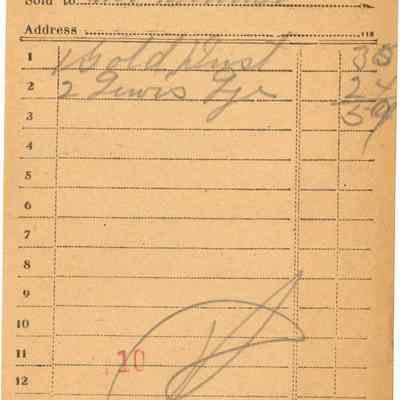 Sold to
Address
1 1 Gold Dust 35
2 2 Lewis Lye 24
3 59
4
5
6
7
8
9
10
11 10
12